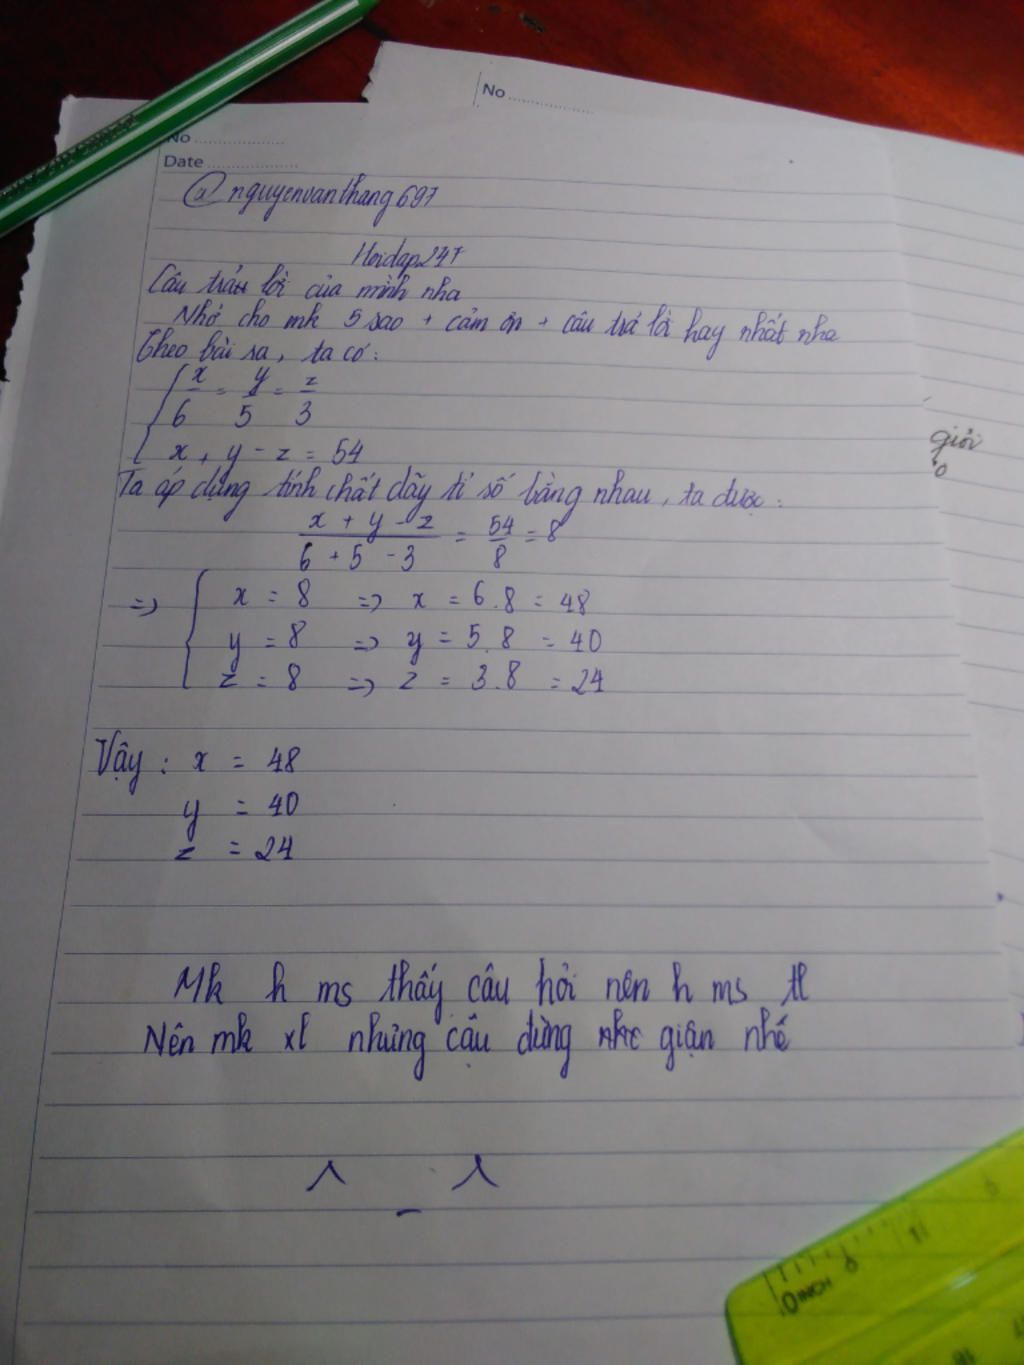 No
No
Date
@ nguyenvanthang697
Hoidap247
Câu trả lời của mình nha
Nhớ cho mk 5 sao + cảm ơn + câu trả lời hay nhất nha
Theo bài ra, ta có:
x/6 = y/5 = z/3
x + y - z = 54
Ta áp dụng tính chất dãy tỉ số bằng nhau, ta được:
x + y - z / 6 + 5 - 3 = 54/8 = 8
=> x = 8 => x = 6.8 = 48
y = 8 => y = 5.8 = 40
z = 8 => z = 3.8 = 24
Vậy: x = 48
y = 40
z = 24
Mk h ms thấy câu hỏi nên h ms tl
Nên mk xl nhưng cậu đừng giận nhé
^ _ ^
giỏi
0 INCH